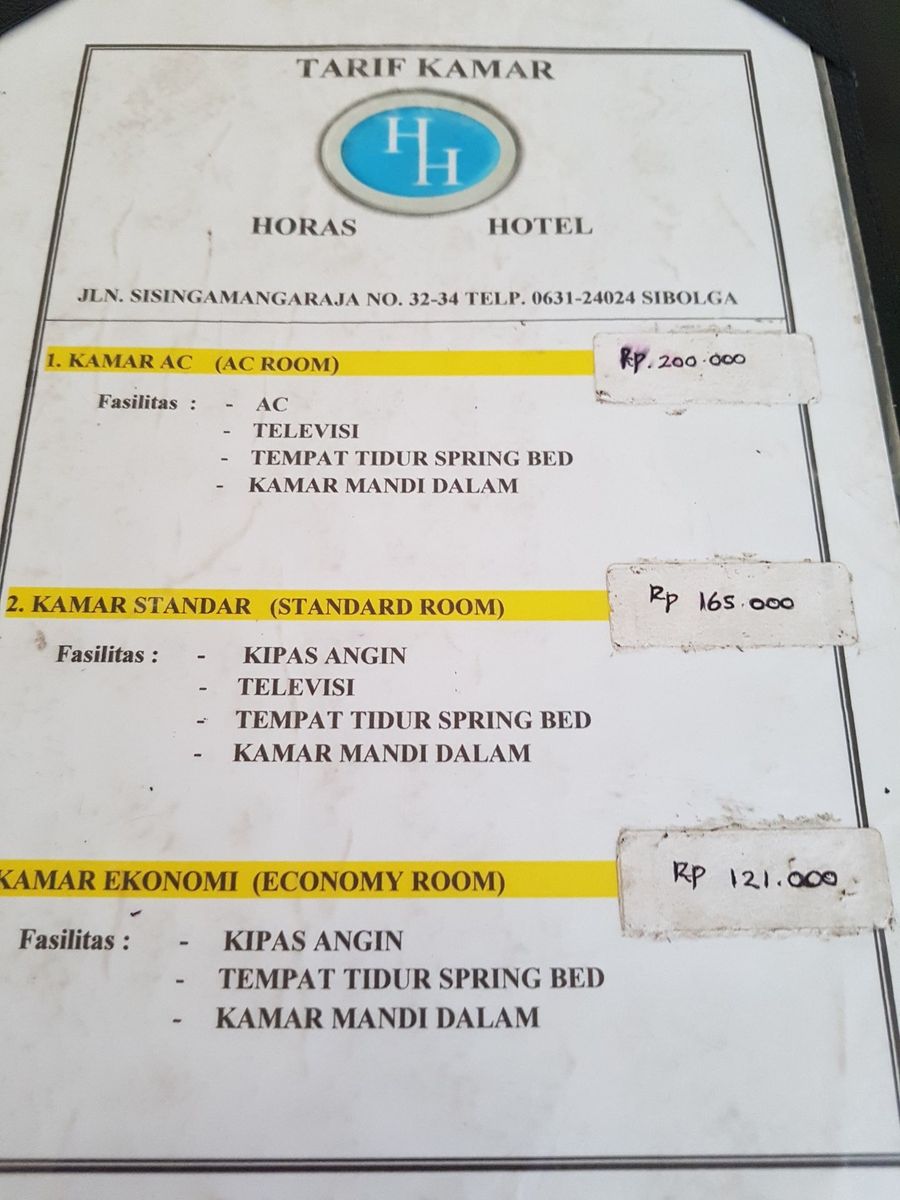 TARIF KAMAR
HH
HORAS HOTEL
JLN. SISINGAMANGARAJA NO. 32-34 TELP. 0631-24024 SIBOLGA
1. KAMAR AC (AC ROOM) Rp. 200.000
Fasilitas : - AC
- TELEVISI
- TEMPAT TIDUR SPRING BED
- KAMAR MANDI DALAM
2. KAMAR STANDAR (STANDARD ROOM) Rp 165.000
Fasilitas : - KIPAS ANGIN
- TELEVISI
- TEMPAT TIDUR SPRING BED
- KAMAR MANDI DALAM
KAMAR EKONOMI (ECONOMY ROOM) Rp 121.000
Fasilitas : - KIPAS ANGIN
- TEMPAT TIDUR SPRING BED
- KAMAR MANDI DALAM